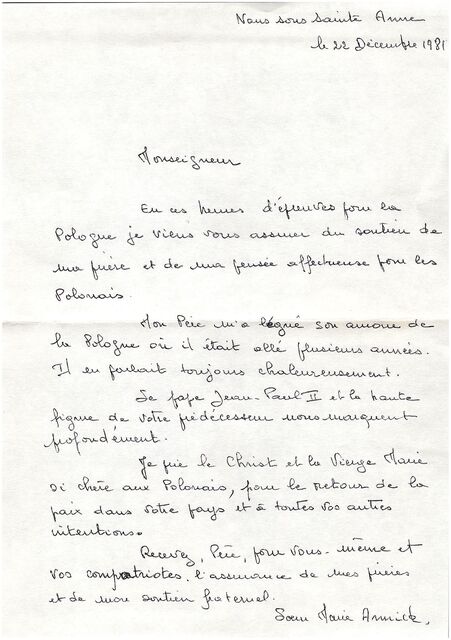 Nous sous Sainte Anne
le 22 Décembre 1981
Monseigneur
En ces heures d'épreuves pour la
Pologne je viens vous assurer du soutien de
ma prière et de ma pensée affectueuse pour les
Polonais.
Mon Père m'a légué son amour de
la Pologne où il était allé plusieurs années.
Il en parlait toujours chaleureusement.
Le pape Jean-Paul II et la haute
figure de votre prédécesseur nous marquent
profondément.
Je prie le Christ et la Vierge Marie
si chère aux Polonais, pour le retour de la
paix dans votre pays et à toutes vos autres
intentions.
Recevez, Père, pour vous-même et
vos compatriotes, l'assurance de mes prières
et de mon soutien fraternel.
Soeur Marie Annick.